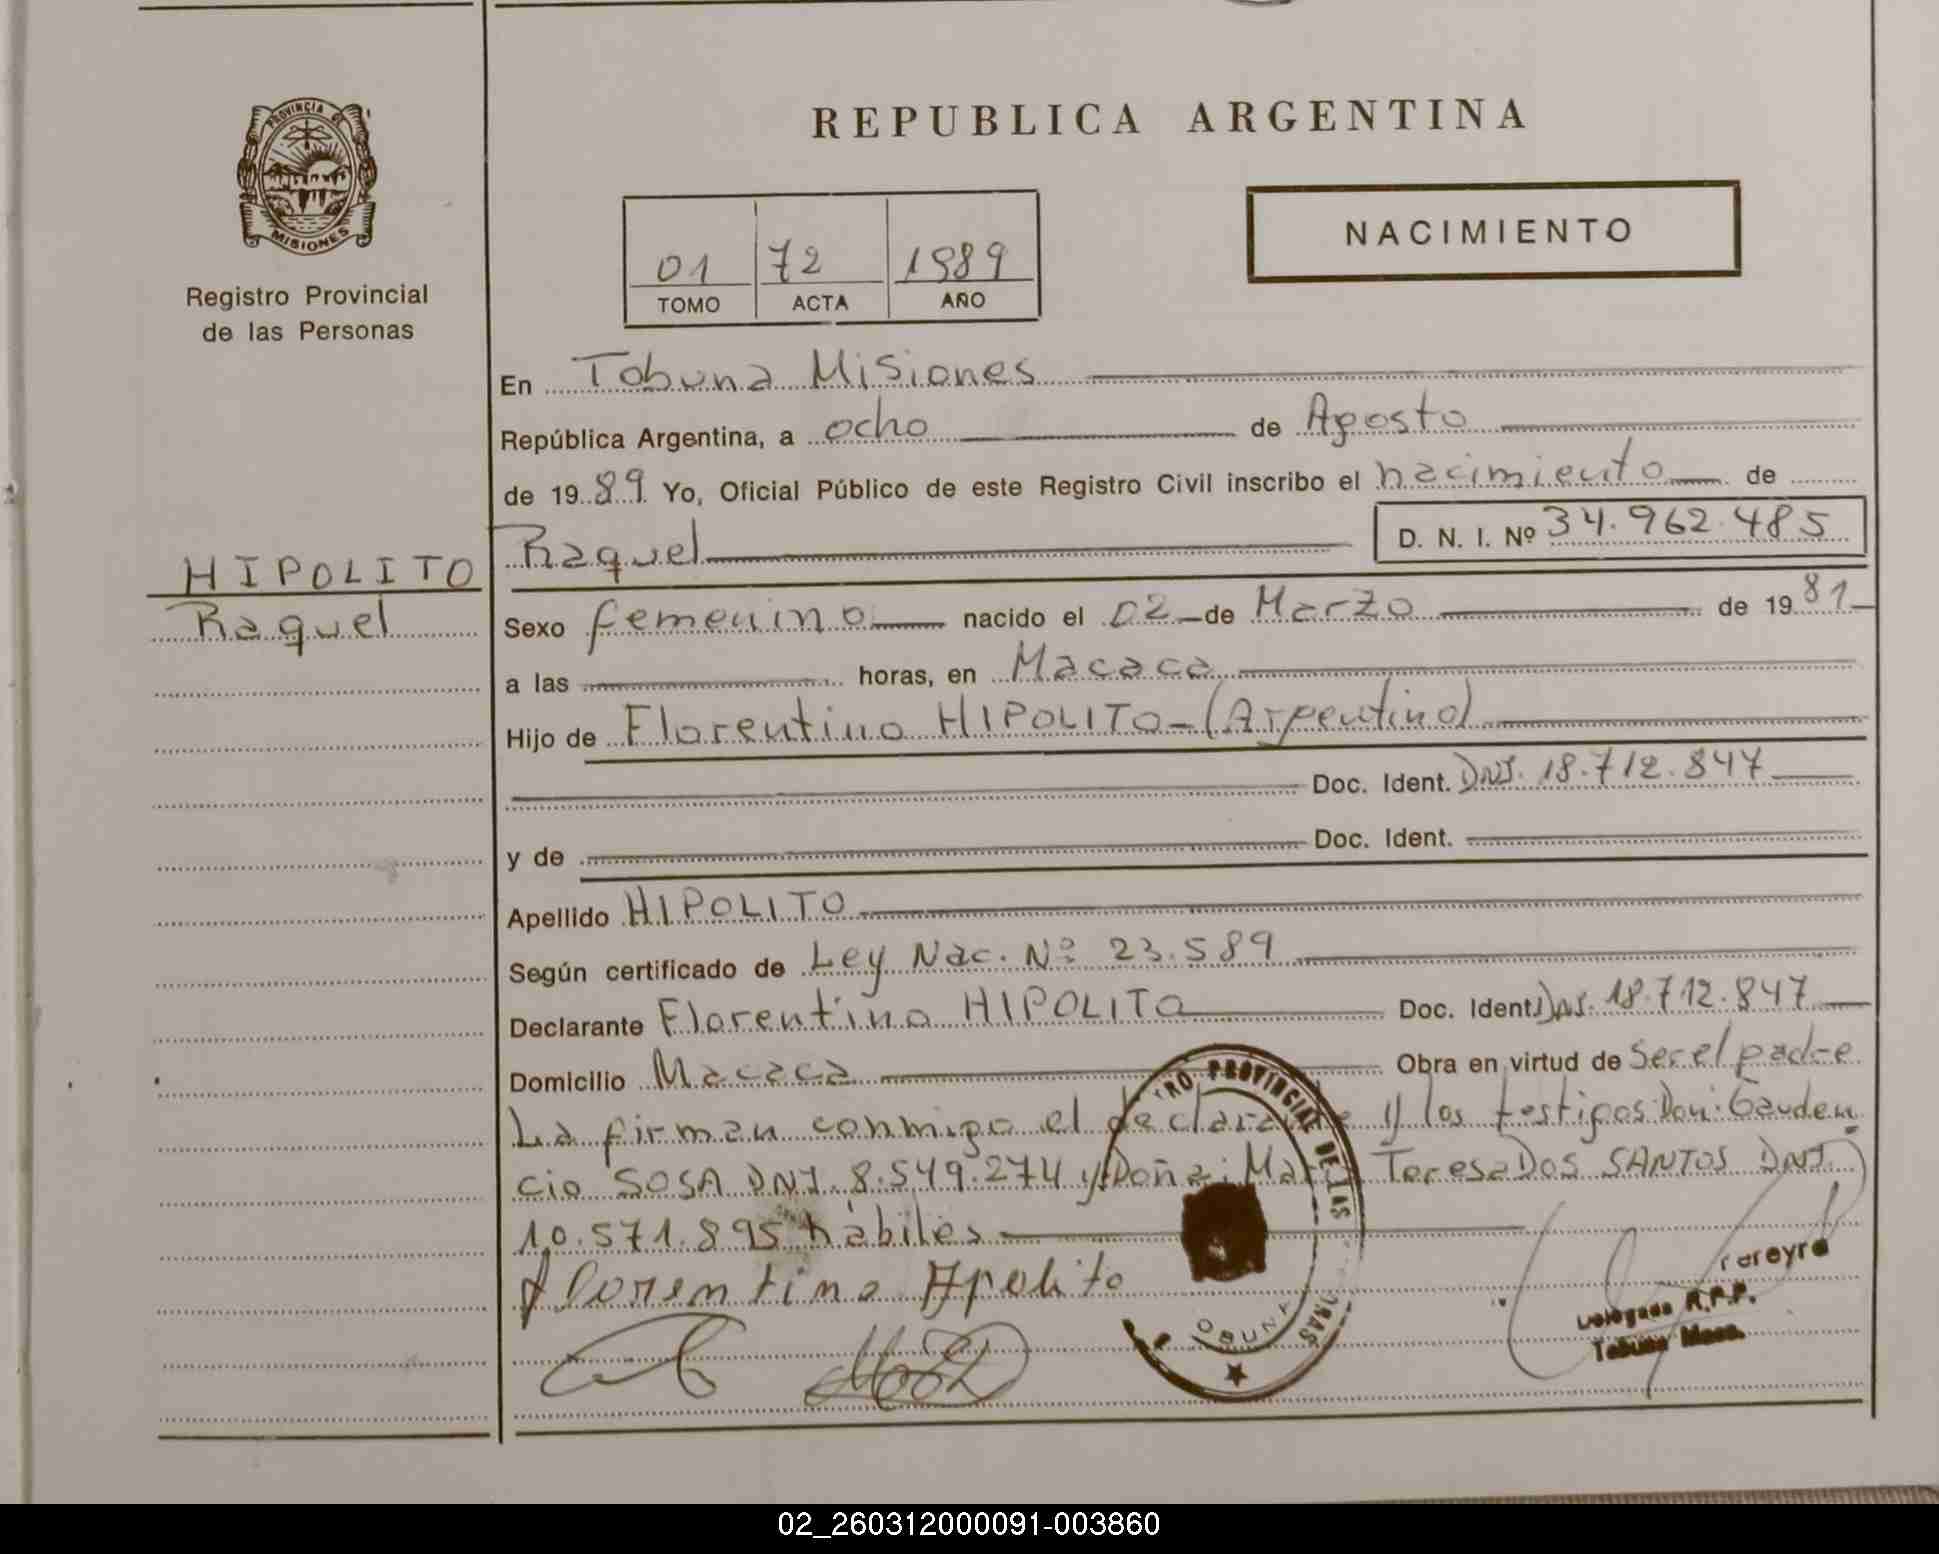 REPUBLICA ARGENTINA
PROVINCIA DE
MISIONES
Registro Provincial
de las Personas
01 72 1989
TOMO ACTA AÑO
NACIMIENTO
HIPOLITO
Raquel
En Tobuna Misiones
República Argentina, a ocho de Agosto
de 1989 Yo, Oficial Público de este Registro Civil inscribo el nacimiento de
Raquel D. N. I. Nº 34.962.485
Sexo femenino nacido el 02 de Marzo de 1981
a las horas, en Macaca
Hijo de Florentino HIPOLITO-(Argentino)
Doc. Ident. DNI. 18.712.847
y de Doc. Ident.
Apellido HIPOLITO
Según certificado de Ley Nac. Nº 23.589
Declarante Florentino HIPOLITO Doc. Ident. DNI. 18.712.847
Domicilio Macaca Obra en virtud de Ser el padre
La firman conmigo el declarante y los testigos: Don: Gauden
cio SOSA DNI. 8.549.274 y Doña: María Teresa DOS SANTOS DNI.
10.571.895 hábiles
Florentino Hpolito
PROVINCIAL DE LAS
OBUNA
Pereyra
Delegado R.P.P.
Tobuna Mnes.
02_260312000091-003860